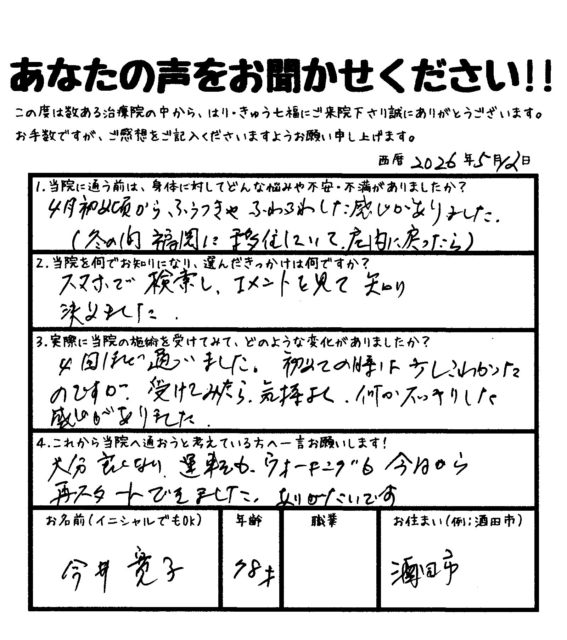 あなたの声をお聞かせください!!
この度は数ある治療院の中から、はり・きゅう七福にご来院下さり誠にありがとうございます。
お手数ですが、ご感想をご記入くださいますようお願い申し上げます。
西暦 2026年5月12日
1.当院に通う前は、身体に対してどんな悩みや不安・不満がありましたか?
4月初め頃から、ふらつきや ふわふわした感じがありました。
(冬の間 福岡に 移住していて、庄内に戻ったら)
2.当院を何でお知りになり、選んだきっかけは何ですか?
スマホで 検索し、コメントを見て 知り
決めました.
3.実際に当院の施術を受けてみて、どのような変化がありましたか?
4回ほど 通いました。 初めての時は 少しこわかった
のですが、受けてみたら、気持よく、何かスッキリした
感じがありました.
4.これから当院へ通おうと考えている方へ一言お願いします!
大分 良くなり、運転も、ウォーキングも 今日から
再スタートできました。ありがたいです
お名前(イニシャルでもOK) 年齢 職業 お住まい(例:酒田市)
今井 寛子 78才 酒田市